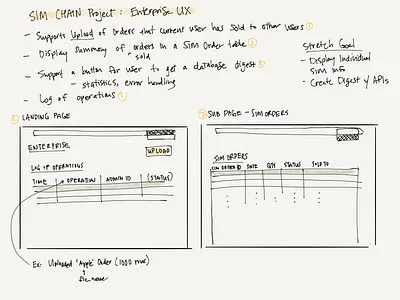 SIM CHAIN Project: Enterprise UX
- Supports Upload of orders that current user has sold to other users ①
- Display Summary of orders in a Sim Order table ②
^ sold
- Support a button for user to get a database digest ①
- statistics, error handling
- Log of operations ①
Stretch Goal
- Display Individual Sim Info
- Create Digest y APIs
① LANDING PAGE
ENTERPRISE
UPLOAD
LOG OF OPERATIONS
TIME OPERATION ADMIN ID (STATUS)
Ex: Uploaded "Apple" Order (1000 rows)
file_name
② SUB PAGE - SIM ORDERS
SIM ORDERS
SIM ORDER ID DATE QTY STATUS SOLD TO